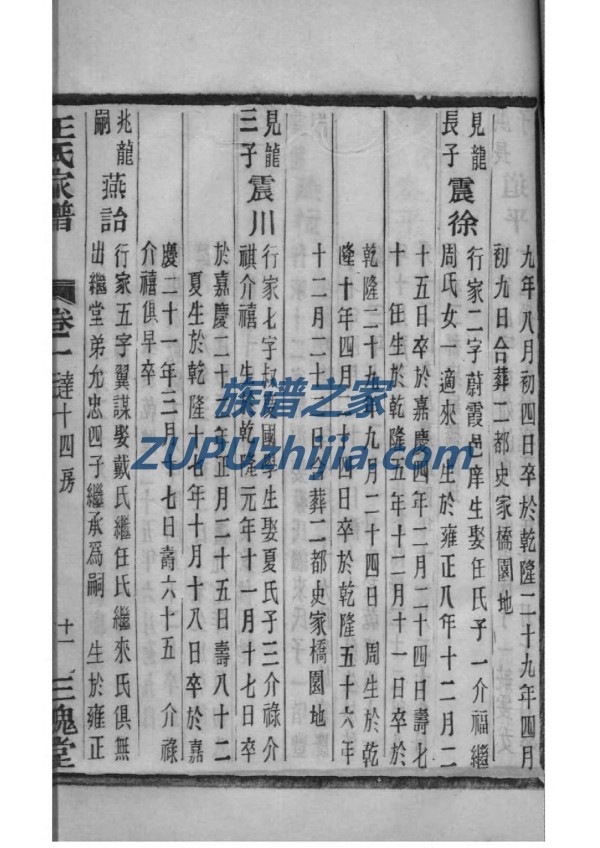 九年八月初四日卒於乾隆二十九年四月
初九日合葬二都史家橋園地
見龍
長子
震徐
行家二字蔚霞邑庠生娶任氏子一介福繼
周氏女一適來 生於雍正八年十二月二
十五日卒於嘉慶四年二月二十四日壽七
十 任生於乾隆五年十二月十一日卒於
乾隆二十九年九月二十四日 周生於乾
隆十年四月二十四日卒於乾隆五十六年
十二月二十三日合葬二都史家橋園地
見龍
三子
震川
行家七字叔 國學生娶夏氏子三介祿介
祺介禧 生 乾隆元年十一月十七日卒
於嘉慶二十二年正月二十五日壽八十二
夏生於乾隆十七年十月十八日卒於嘉
慶二十一年三月 七日壽六十五 介祿
介禧俱早卒
兆龍
嗣
燕詒
行家五字翼謀娶戴氏繼任氏繼來氏俱無
出繼堂弟允忠四子繼承為嗣 生於雍正
王氏家譜
卷二
達十四房
十一
三槐堂
族谱之家
ZUPUzhijia.com